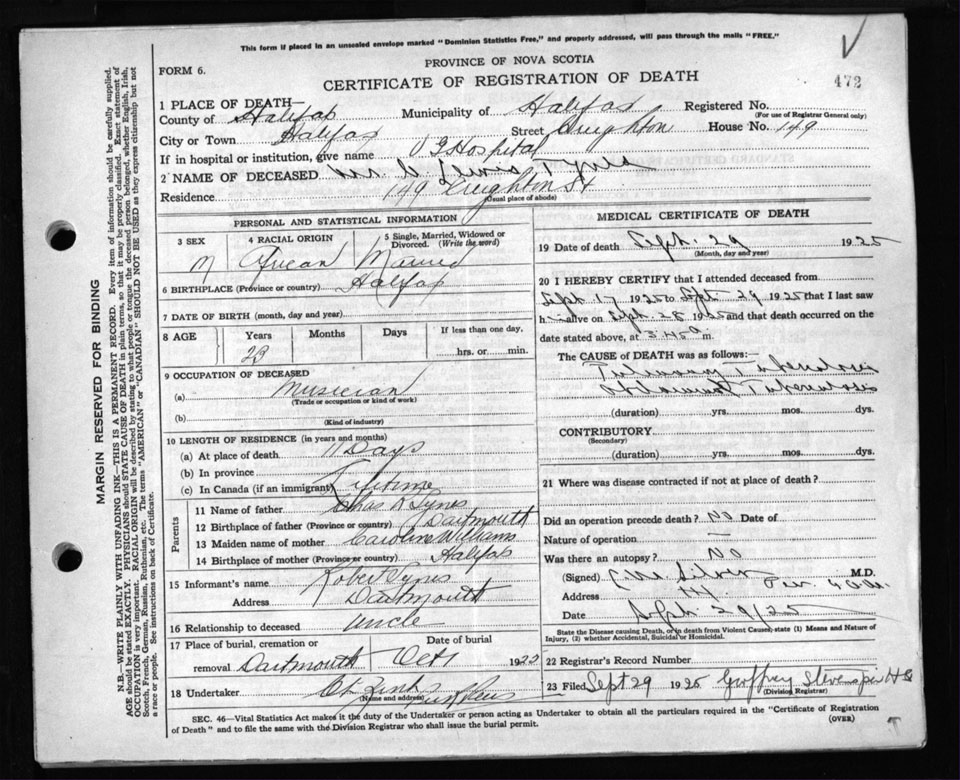 This form if placed in an unsealed envelope marked "Dominion Statistics Free," and properly addressed, will pass through the mails "FREE."
PROVINCE OF NOVA SCOTIA
FORM 6.
CERTIFICATE OF REGISTRATION OF DEATH
472
1 PLACE OF DEATH—
County of Halifax Municipality of Halifax Registered No.
(For use of Registrar General only)
City or Town Halifax Street Creighton House No. 149
If in hospital or institution, give name V G Hospital
2 NAME OF DECEASED Lewis Tynes
Residence 149 Creighton St
(Usual place of abode)
PERSONAL AND STATISTICAL INFORMATION
3 SEX 4 RACIAL ORIGIN 5 Single, Married, Widowed or Divorced. (Write the word)
M African Married
6 BIRTHPLACE (Province or country) Halifax
7 DATE OF BIRTH (month, day and year)
8 AGE Years Months Days If less than one day.
23 hrs. or min.
9 OCCUPATION OF DECEASED
(a) Musician
(Trade or occupation or kind of work)
(b)
(Kind of industry)
10 LENGTH OF RESIDENCE (in years and months)
(a) At place of death 11 Days
(b) In province
(c) In Canada (if an immigrant) Lifetime
Parents
11 Name of father Chas A Tynes
12 Birthplace of father (Province or country) Dartmouth
13 Maiden name of mother Caroline Williams
14 Birthplace of mother (Province or country) Halifax
15 Informant's name Robert Tynes
Address Dartmouth
16 Relationship to deceased Uncle
17 Place of burial, cremation or Date of burial
removal Dartmouth Oct 1 192
18 Undertaker
(Name and address)
MEDICAL CERTIFICATE OF DEATH
19 Date of death Sept. 29 1925
(Month, day and year)
20 I HEREBY CERTIFY that I attended deceased from
Sept 17 1925 to Sept 29 1925 that I last saw
h alive on Sept 28 1925 and that death occurred on
date stated above, at 3.45 a m.
The CAUSE of DEATH was as follows:
Pulmonary Tuberculosis
Tuberculosis
(duration) yrs. mos. dys.
CONTRIBUTORY
(Secondary)
(duration) yrs. mos. dys.
21 Where was disease contracted if not at place of death?
Did an operation precede death? No Date of
Nature of operation —
Was there an autopsy? No
(Signed) M.D.
Address
Date Sept 29/25
State the Disease causing Death, or in death from Violent Causes, state (1) Means and Nature of
Injury, (2) whether Accidental, Suicidal or Homicidal.
22 Registrar's Record Number
23 Filed Sept 29 1925 Geoffrey
(Division Registrar)
SEC. 46—Vital Statistics Act makes it the duty of the Undertaker or person acting as Undertaker to obtain all the particulars required in the "Certificate of Registration
of Death" and to file the same with the Division Registrar who shall issue the burial permit. (OVER)
MARGIN RESERVED FOR BINDING
N.B.—WRITE PLAINLY, WITH UNFADING INK—THIS IS A PERMANENT RECORD. Every item of information should be carefully supplied.
AGE should be stated EXACTLY. PHYSICIANS should STATE CAUSE OF DEATH in plain terms, so that it may be properly classified. Exact statement of
OCCUPATION is very important. RACIAL ORIGIN will be described by stating to what people or tongue the deceased person belonged, whether English, Irish,
Scotch, French, German, Russian, Ruthenian, etc. The terms "AMERICAN" or "CANADIAN" SHOULD NOT BE USED as they express citizenship but not
a race or people. See instructions on back of Certificate.